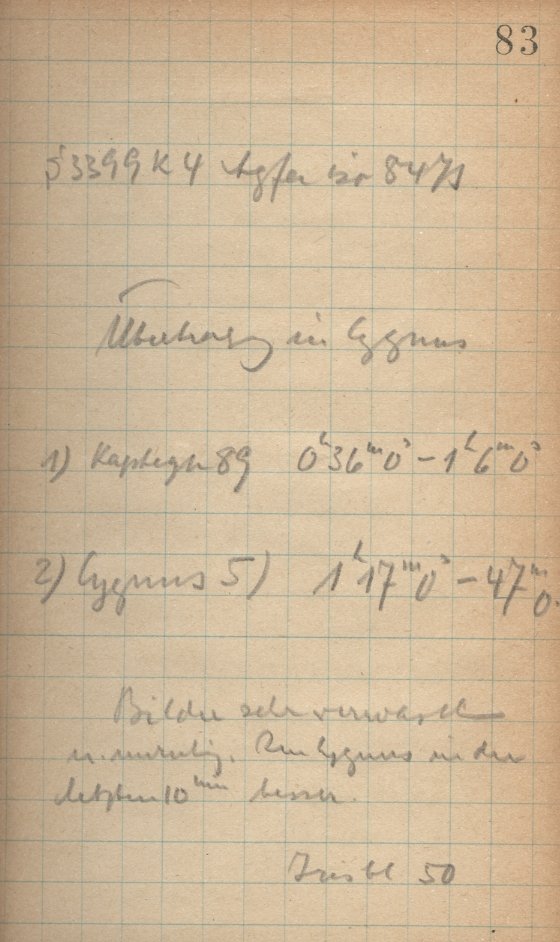 83
S 3399 K 4 Agfa iso 8471
Übertragg in Cygnus
1) Kapteyn 89 0ʰ36ᵐ0ˢ – 1ʰ6ᵐ0ˢ
2) Cygnus 5) 1ʰ17ᵐ0ˢ – 47ᵐ0.
Bilder sehr verwaschen
u. unruhig. Bei Cygnus in den
letzten 10ᵐⁱⁿ besser.
50